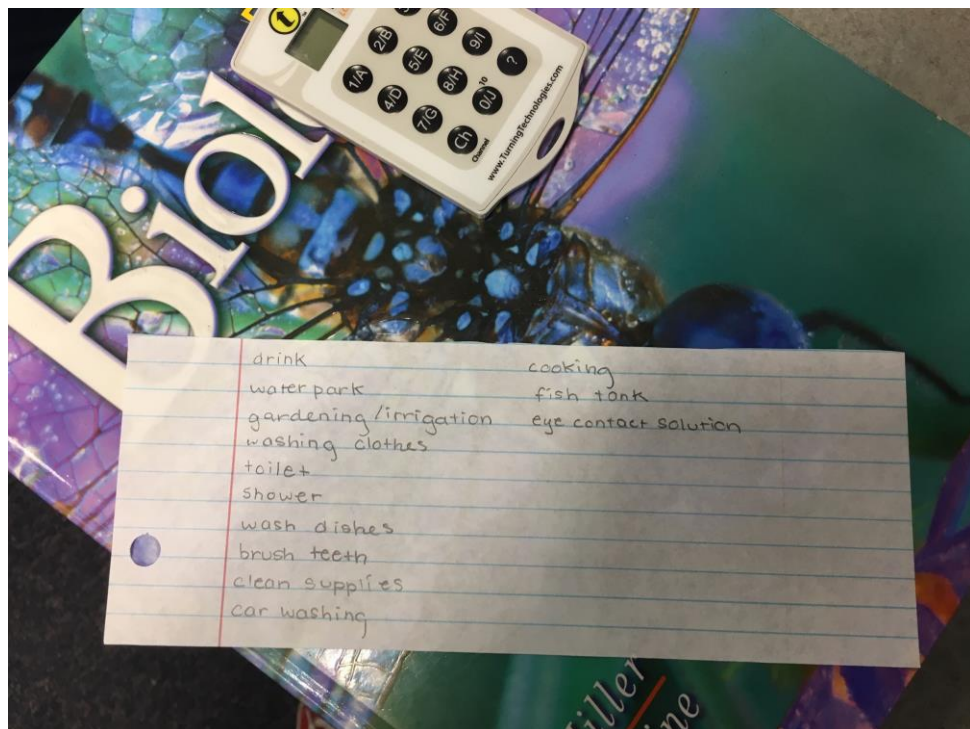 Biol
2/B
5/E
6/F
9/I
1/A
4/D
8/H
?
7/G
0/J
10
Ch
Channel
www.TurningTechnologies.com
drink
water park
gardening/irrigation
washing clothes
toilet
shower
wash dishes
brush teeth
clean supplies
car washing
cooking
fish tank
eye contact solution
iller
ine